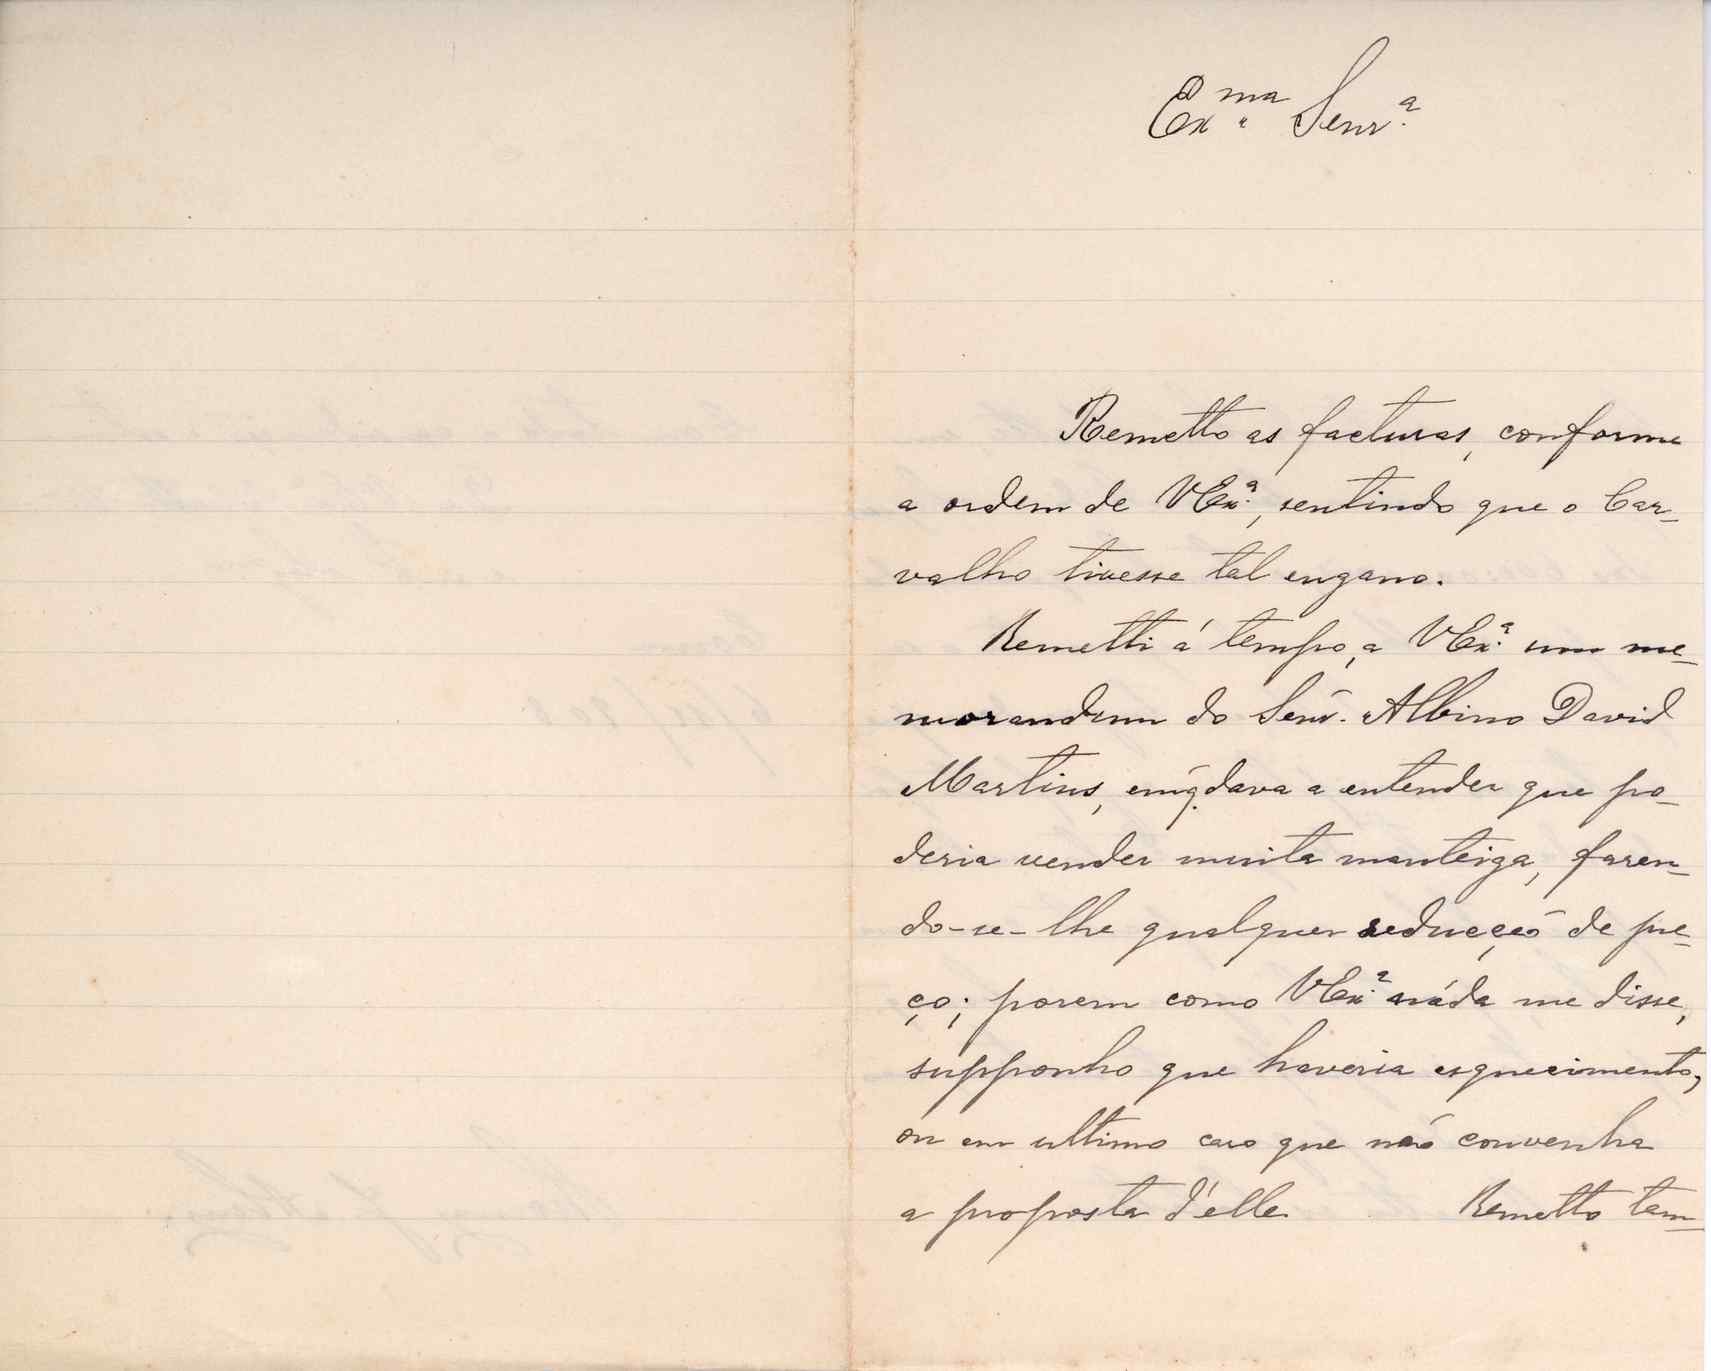 Exma Senra.
Remetto as facturas, conforme
a ordem de VExa., sentindo que o Car-
valho tivesse tal engano.
Remetti á tempo, a VExa. um me-
morandum do Senr. Albino David
Martins, em q. dava a entender que po-
deria vender muita manteiga, fazen-
do-se-lhe qualquer reducção de pre-
ço; porem como VExa. náda me disse,
supponho que haveria esquecimento,
ou em ultimo caso que não convenha
a proposta d'elle. Remetto tam-